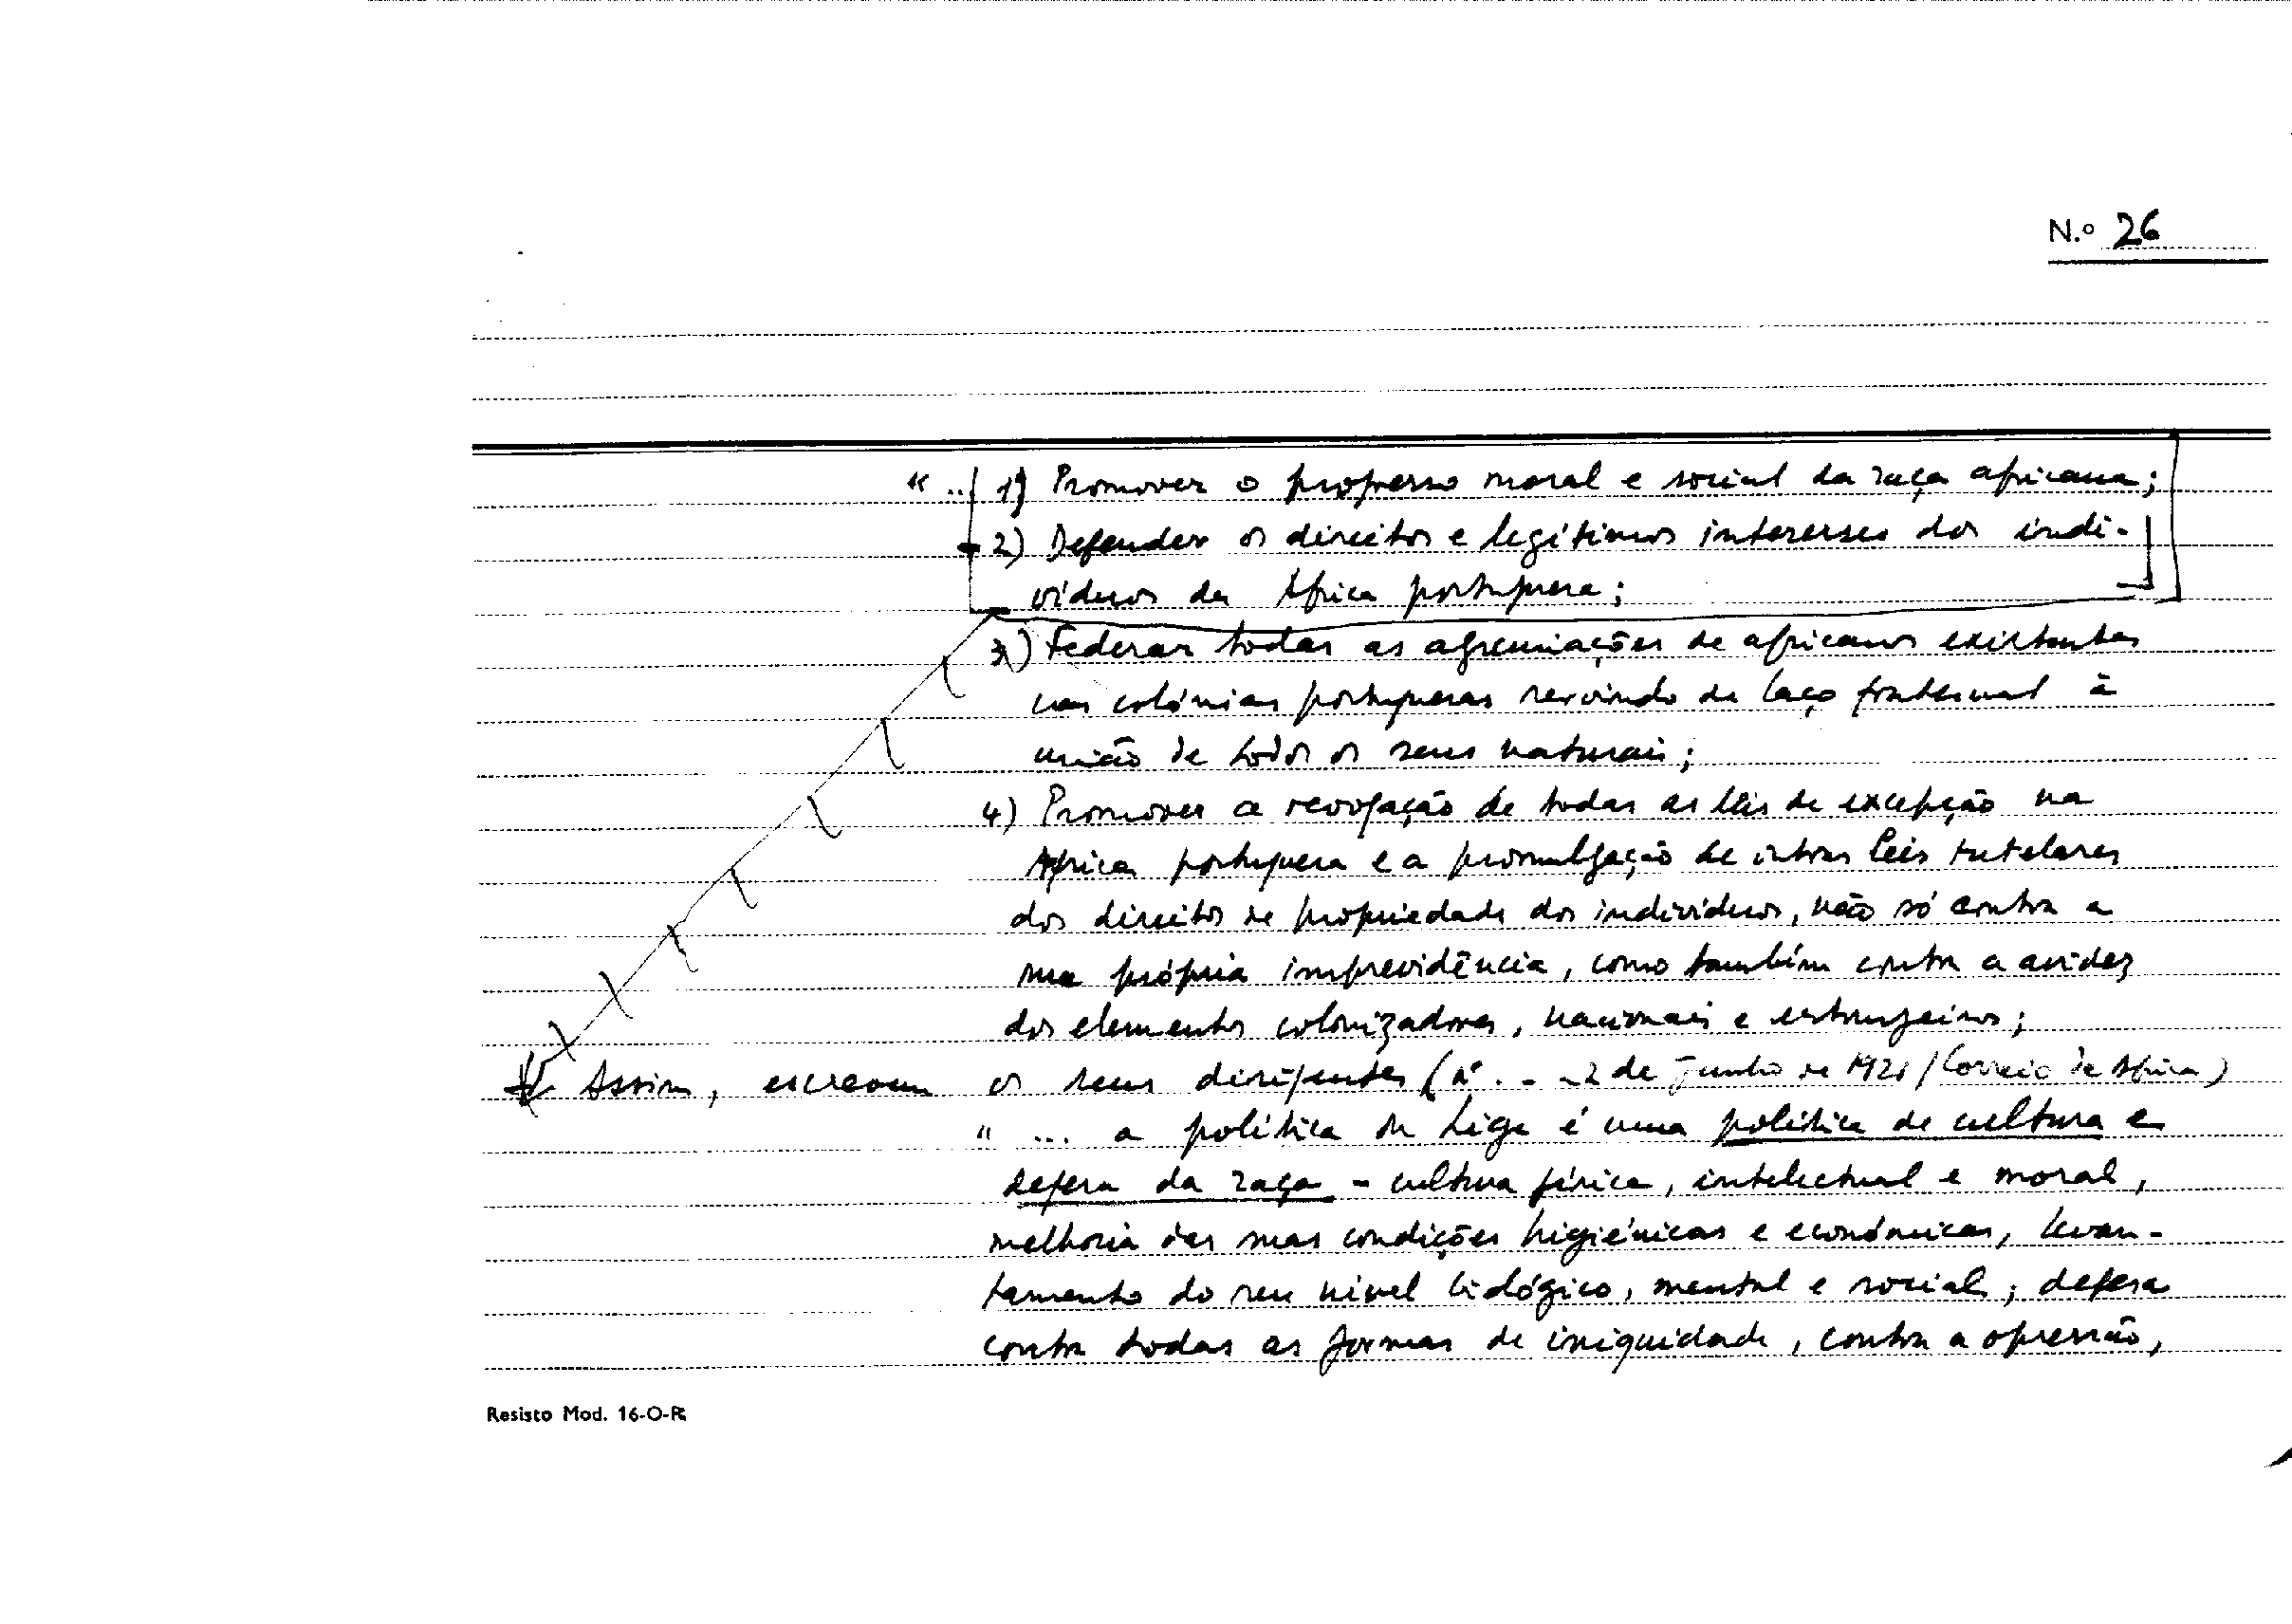 N.º 26
"... 1) Promover o progresso moral e social da raça africana;
2) Defender os direitos e legítimos interesses dos indi-
víduos da África portuguesa;
3) Federar todas as agremiações de africanos existentes
nas colónias portuguesas servindo de laço fraternal à
união de todos os seus naturais;
4) Promover a revogação de todas as leis de excepção na
África portuguesa e a promulgação de outras leis tutelares
dos direitos de propriedade dos indivíduos, não só contra a
sua própria imprevidência, como também contra a avidez
dos elementos colonizadores, nacionais e estrangeiros;
Assim, escrevem os seus dirigentes (nº. - -2 de Junho de 1921 / Correio de África)
" ... a política da Liga é uma política de cultura e
defesa da raça - cultura física, intelectual e moral,
melhoria das suas condições higiénicas e económicas, levan-
tamento do seu nível biológico, mental e social; defesa
contra todas as formas de iniquidade, contra a opressão,
Resisto Mod. 16-O-R